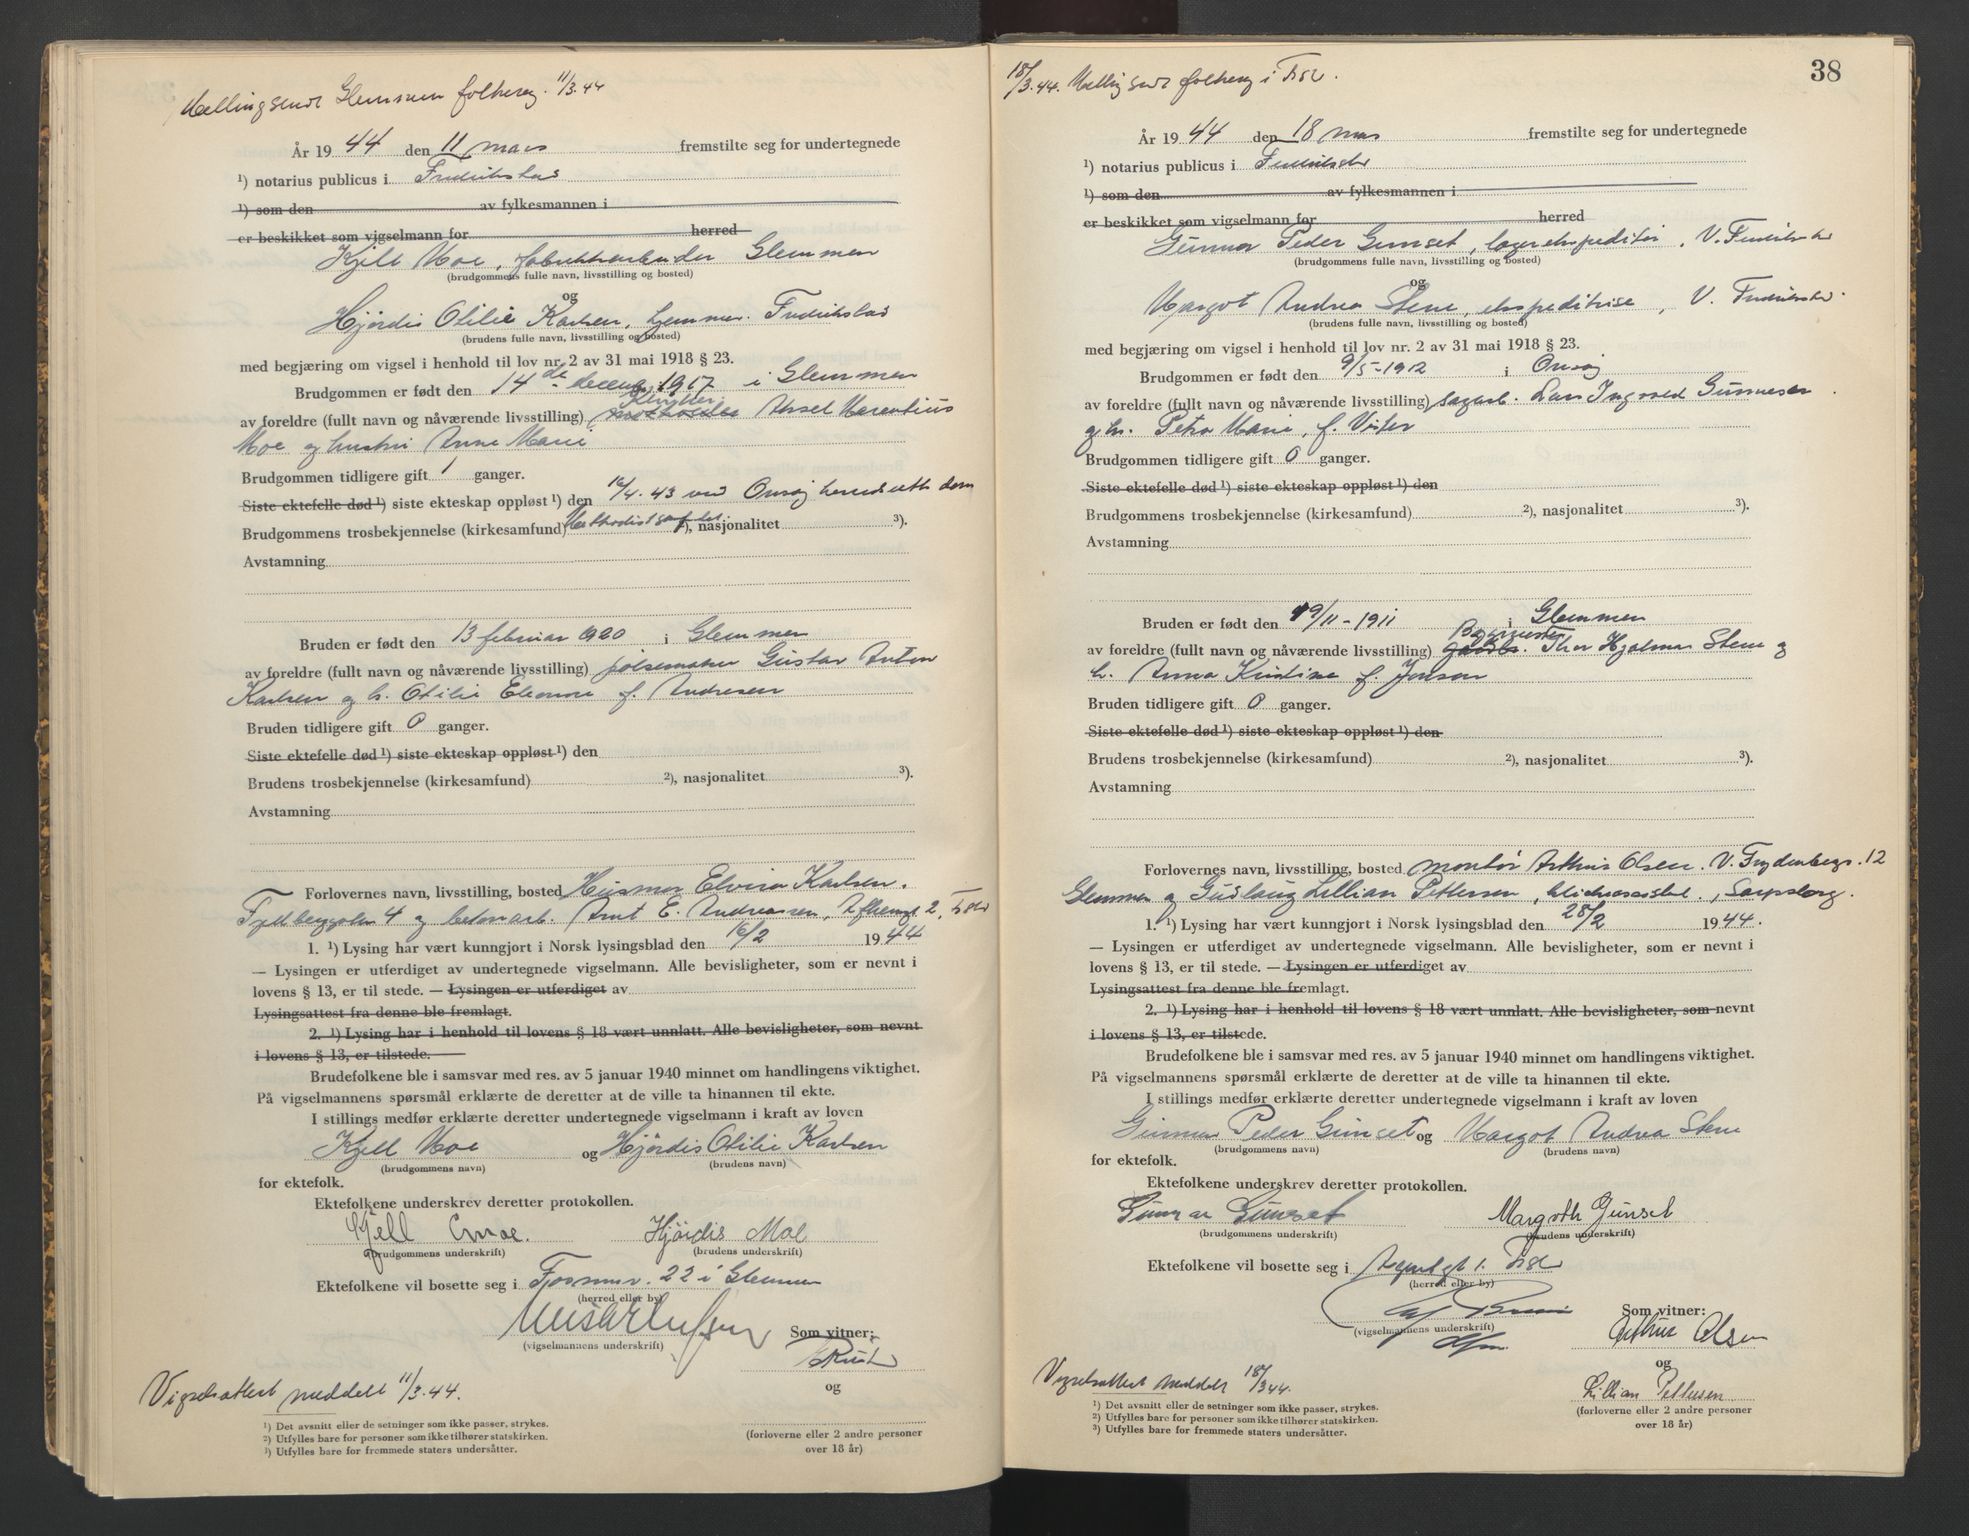 Melling sendt Glemmen folkereg. 11/3.44
År 1944 den 11 mars fremstilte seg for undertegnede
¹) notarius publicus i Fredrikstad
¹) som den av fylkesmannen i
er beskikket som vigselmann for herred
Kjell Moe, fabrikkarbeider Glemmen
(brudgommens fulle navn, livsstilling og bosted)
og
Hjördis Otilie Karlsen, hjemmev. Fredrikstad
(brudens fulle navn, livsstilling og bosted)
med begjæring om vigsel i henhold til lov nr. 2 av 31 mai 1918 § 23.
Brudgommen er født den 14 de decemb 1917 i Glemmen
av foreldre (fullt navn og nåværende livsstilling) Aksel Marentius
Moe og hustru Anne Marie
Brudgommen tidligere gift 1 ganger.
Siste ektefelle død ¹) siste ekteskap oppløst ¹) den 16/4.43 ved Onsøy herredsretts dom
Brudgommens trosbekjennelse (kirkesamfund) Methodistsamfundet ²), nasjonalitet ³).
Avstamning
Bruden er født den 13 februar 1920 i Glemmen
av foreldre (fullt navn og nåværende livsstilling) pølsemaker Gustav Anton
Karlsen og h. Otilie Eleonore f. Andresen
Bruden tidligere gift 0 ganger.
Siste ektefelle død ¹) siste ekteskap oppløst ¹) den
Brudens trosbekjennelse (kirkesamfund) ²), nasjonalitet ³).
Avstamning
Forlovernes navn, livsstilling, bosted Husmor Elvira Karlsen.
4 og betongarb. Arnt E. Andreassen, 2, Fr.stad
1. ¹) Lysing har vært kunngjort i Norsk lysingsblad den 16/2 1944
— Lysingen er utferdiget av undertegnede vigselmann. Alle bevisligheter, som er nevnt i
lovens § 13, er til stede. — Lysingen er utferdiget av
Lysingsattest fra denne ble fremlagt.
2. ¹) Lysing har i henhold til lovens § 18 vært unnlatt. Alle bevisligheter, som nevnt
i lovens § 13, er tilstede.
Brudefolkene ble i samsvar med res. av 5 januar 1940 minnet om handlingens viktighet.
På vigselmannens spørsmål erklærte de deretter at de ville ta hinannen til ekte.
I stillings medfør erklærte deretter undertegnede vigselmann i kraft av loven
Kjell Moe og Hjördis Otilie Karlsen
(brudgommens navn) (brudens navn)
for ektefolk.
Ektefolkene underskrev deretter protokollen.
Kjell Moe. Hjördis Moe
(brudgommens underskrift) (brudens underskrift)
Ektefolkene vil bosette seg i 22 i Glemmen
(herred eller by)
(vigselmannens underskrift)
Som vitner:
og
Vigselsattest meddelt 11/3.44.
¹) Det avsnitt eller de setninger som ikke passer, strykes.
²) Utfylles bare for personer som ikke tilhører statskirken.
³) Utfylles bare for fremmede staters undersåtter.
(forloverne eller 2 andre personer
over 18 år)
38
18/3.44. Melling sendt folkereg i Fr.std.
År 1944 den 18 mars fremstilte seg for undertegnede
¹) notarius publicus i Fredrikstad
¹) som den av fylkesmannen i
er beskikket som vigselmann for herred
Gunnar Peder Gunset, lagerekspeditør, V. Fredrikstad
(brudgommens fulle navn, livsstilling og bosted)
og
Margot Andrea Stene, ekspeditrise, V. Fredrikstad.
(brudens fulle navn, livsstilling og bosted)
med begjæring om vigsel i henhold til lov nr. 2 av 31 mai 1918 § 23.
Brudgommen er født den 9/5-1912 i Onsøy
av foreldre (fullt navn og nåværende livsstilling) sagarb. Lars Ingvald Gunnesen
og h. Petra Marie, f.
Brudgommen tidligere gift 0 ganger.
Siste ektefelle død ¹) siste ekteskap oppløst ¹) den
Brudgommens trosbekjennelse (kirkesamfund) ²), nasjonalitet ³).
Avstamning
Bruden er født den 19/11-1911 i Glemmen
av foreldre (fullt navn og nåværende livsstilling) Thor Hjalmar Stene og
h. Anna Kristine f. Jonson
Bruden tidligere gift 0 ganger.
Siste ektefelle død ¹) siste ekteskap oppløst ¹) den
Brudens trosbekjennelse (kirkesamfund) ²), nasjonalitet ³).
Avstamning
Forlovernes navn, livsstilling, bosted montør Arthur Olsen. V. Frydenbergs. 12
Glemmen og Gudlaug Lillian Pettersen, Sarpsborg.
1. ¹) Lysing har vært kunngjort i Norsk lysingsblad den 28/2 1944.
— Lysingen er utferdiget av undertegnede vigselmann. Alle bevisligheter, som er nevnt i
lovens § 13, er til stede. — Lysingen er utferdiget av
Lysingsattest fra denne ble fremlagt.
2. ¹) Lysing har i henhold til lovens § 18 vært unnlatt. Alle bevisligheter, som nevnt
i lovens § 13, er tilstede.
Brudefolkene ble i samsvar med res. av 5 januar 1940 minnet om handlingens viktighet.
På vigselmannens spørsmål erklærte de deretter at de ville ta hinannen til ekte.
I stillings medfør erklærte deretter undertegnede vigselmann i kraft av loven
Gunnar Peder Gunset og Margot Andrea Stene
(brudgommens navn) (brudens navn)
for ektefolk.
Ektefolkene underskrev deretter protokollen.
Gunnar Gunset Margoth Gunset
(brudgommens underskrift) (brudens underskrift)
Ektefolkene vil bosette seg i
(herred eller by)
(vigselmannens underskrift)
Som vitner:
Arthur Olsen
og
Lillian Pettersen
Vigselsattest meddelt 18/3 44.
¹) Det avsnitt eller de setninger som ikke passer, strykes.
²) Utfylles bare for personer som ikke tilhører statskirken.
³) Utfylles bare for fremmede staters undersåtter.
(forloverne eller 2 andre personer
over 18 år)